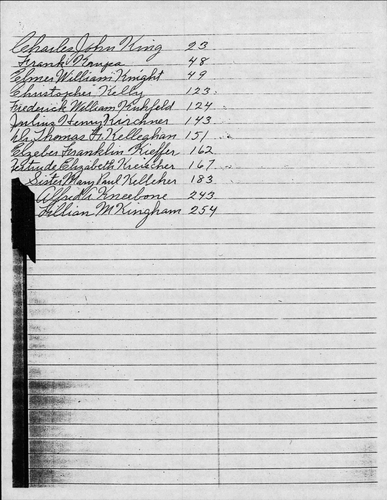 Charles John King 23
Frank Konpa 48
Elmer William Knight 49
Christopher Kelly 123
Frederick William Kuhfeld 124
Julius Henry Kirchner 143
Thomas F. Kelleghan 151
Elzeber Franklin Kieffer 162
Gertrude Elizabeth Kreischer 167
Sister Mary Paul Kelleher 183
Alfred A Kneebone 243
Lillian M Kingham 254